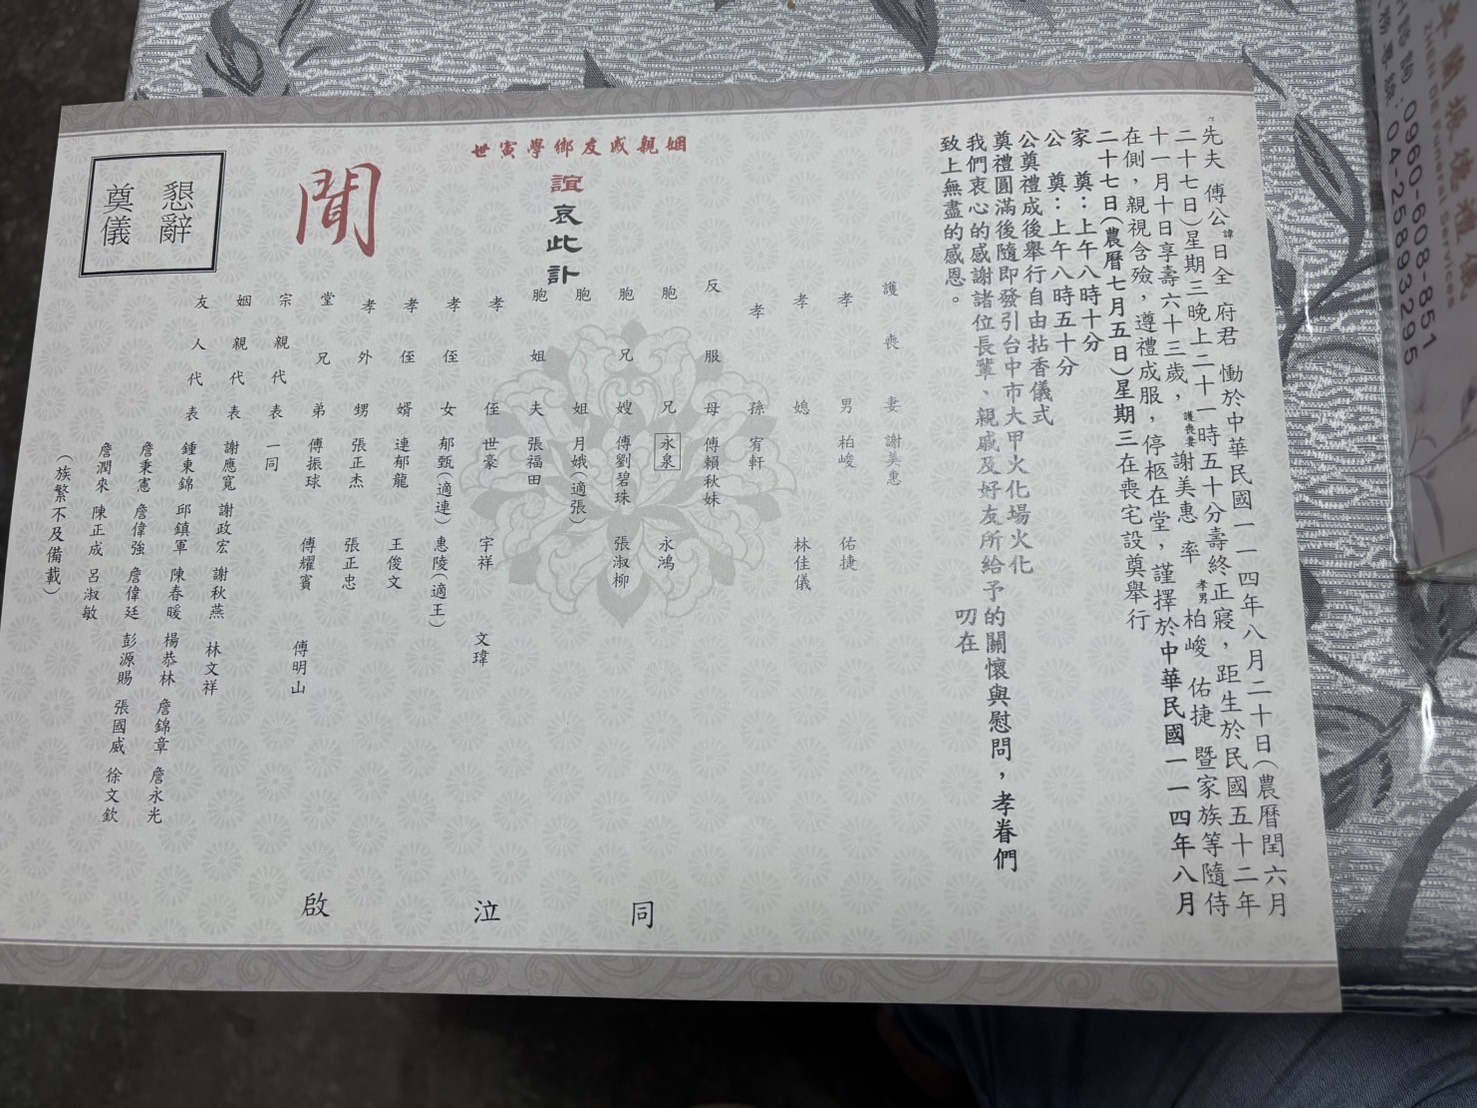 先夫 傅公諱日全 府君 慟於中華民國一一四年八月二十日(農曆閏六月
二十七日)星期三晚上二十一時五十分壽終正寢，距生於民國五十二年
十一月十日享壽六十三歲，護喪妻謝美惠 率 孝男柏峻 佑捷 暨家族等隨侍
在側，親視含殮，遵禮成服，停柩在堂，謹擇於中華民國一一四年八月
二十七日(農曆七月五日)星期三在喪宅設奠舉行
家 奠：上午八時十分
公 奠：上午八時五十分
公奠禮成後舉行自由拈香儀式
奠禮圓滿後隨即發引台中市大甲火化場火化
我們衷心的感謝諸位長輩、親戚及好友所給予的關懷與慰問，孝眷們
致上無盡的感恩。
叨在
姻親戚友鄉學寅世
誼哀此訃
聞
懇辭
奠儀
護喪妻 謝美惠
孝男 柏峻 佑捷
孝媳 林佳儀
孝孫 宥軒
反服母 傅賴秋妹
胞兄 永泉 永鴻
胞兄嫂 傅劉碧珠 張淑柳
胞姐 月娥(適張)
胞姐夫 張福田
孝侄 世豪 宇祥 文瑋
孝侄女 郁甄(適連) 惠陵(適王)
孝侄婿 連郁龍 王俊文
孝外甥 張正杰 張正忠
堂兄弟 傅振球 傅耀賓 傅明山
宗親代表 一同
姻親代表 謝應寬 謝政宏 謝秋燕 林文祥
友人代表 鍾東錦 邱鎮軍 陳春暖 楊恭林 詹錦章 詹永光
詹秉憲 詹偉強 詹偉廷 彭源賜 張國威 徐文欽
詹潤來 陳正成 呂淑敏
(族繁不及備載)
同泣啟
0960-608-851
04-25893295